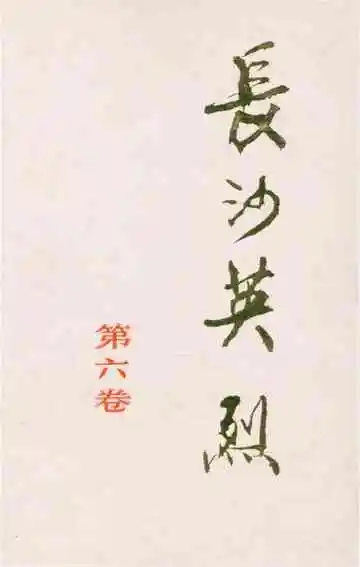 長沙英烈
第六卷